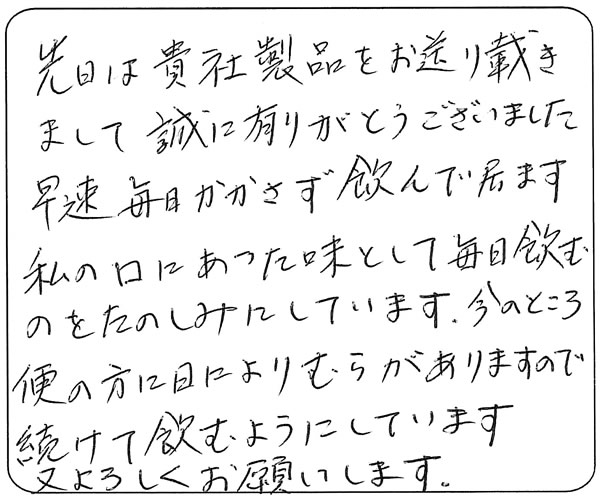 先日は貴社製品をお送り載き
まして誠に有りがとうございました
早速毎日かかさず飲んで居ます
私の口にあった味として毎日飲む
のをたのしみにしています.今のところ
便の方に日によりむらがありますので
続けて飲むようにしています
又よろしくお願いします.